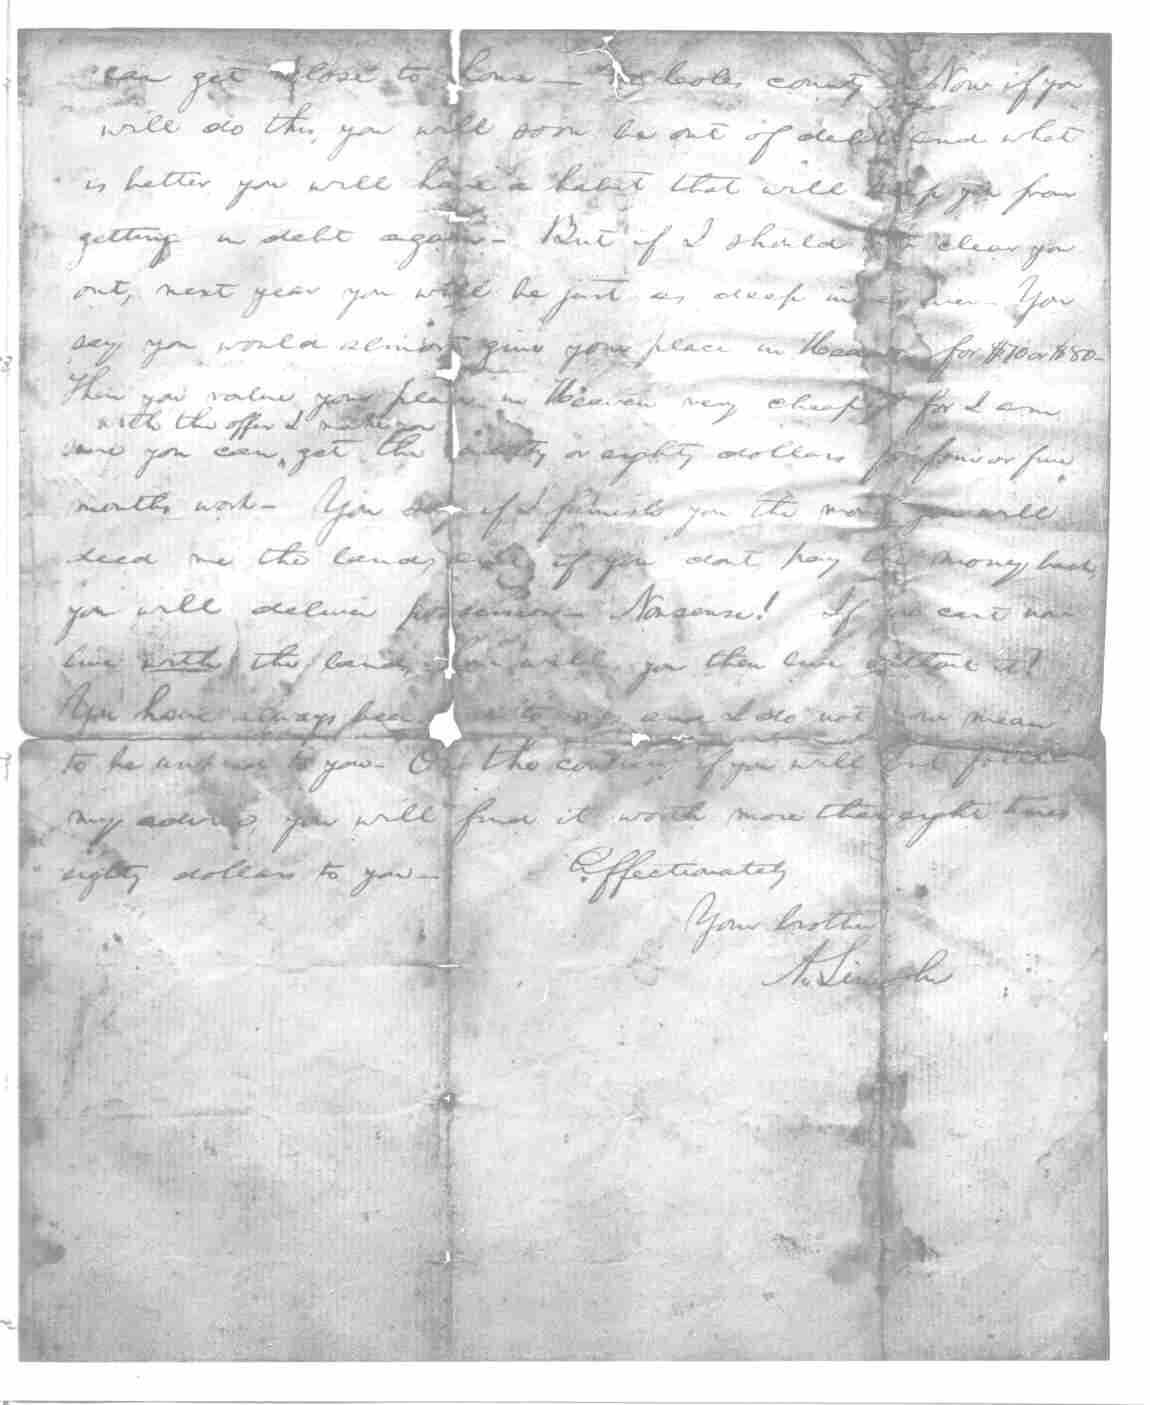 can get close to home — in Coles county — Now if you
will do this, you will soon be out of debt and what
is better you will have a habit that will keep you from
getting in debt again — But if I should clear you
out, next year you will be just as deep in as ever — You
say you would almost give your place in Heaven for $70 or $80 —
Then you value your place in Heaven very cheaply for I am
with the offer I make you
sure you can get the seventy or eighty dollars for four or five
months work — You say if I furnish you the money you will
deed me the land, and if you dont pay the money back,
you will deliver possession — Nonsense! If you cant now
live with the land, how will you then live without it?
You have always been to me, and I do not now mean
to be unkind to you — On the contrary, if you will but follow
my advice, you will find it worth more than eight times
eighty dollars to you —
Affectionately
Your brother
A. Lincoln